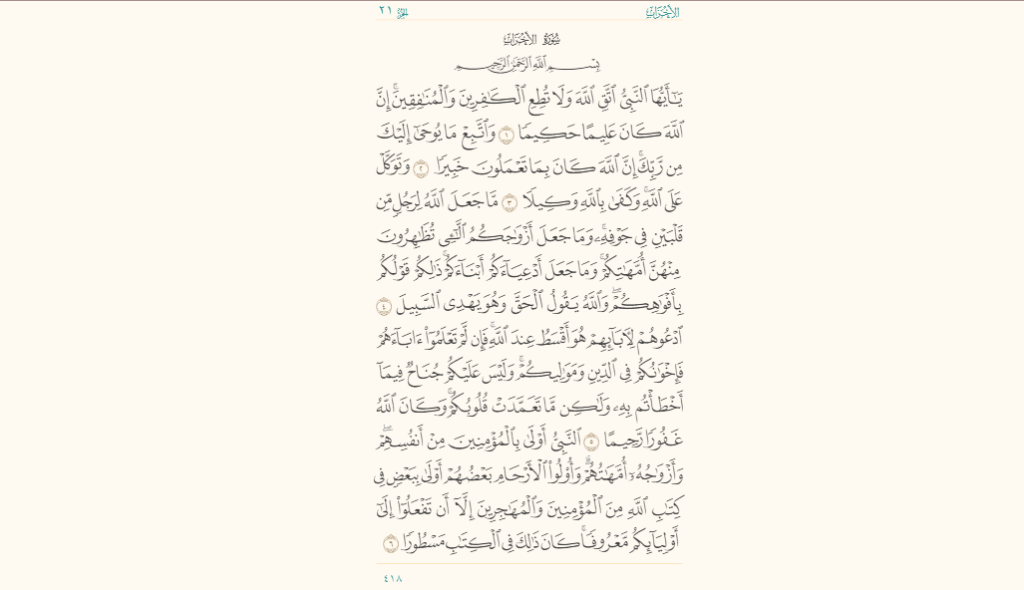 الأحزاب
الجزء ٢١
سورة الأحزاب
بِسْمِ ٱللَّهِ ٱلرَّحْمَٰنِ ٱلرَّحِيمِ
يَٰٓأَيُّهَا ٱلنَّبِىُّ ٱتَّقِ ٱللَّهَ وَلَا تُطِعِ ٱلْكَٰفِرِينَ وَٱلْمُنَٰفِقِينَ ۗ إِنَّ
ٱللَّهَ كَانَ عَلِيمًا حَكِيمًا ١ وَٱتَّبِعْ مَا يُوحَىٰٓ إِلَيْكَ
مِن رَّبِّكَ ۚ إِنَّ ٱللَّهَ كَانَ بِمَا تَعْمَلُونَ خَبِيرًا ٢ وَتَوَكَّلْ
عَلَى ٱللَّهِ ۚ وَكَفَىٰ بِٱللَّهِ وَكِيلًا ٣ مَّا جَعَلَ ٱللَّهُ لِرَجُلٍ مِّن
قَلْبَيْنِ فِى جَوْفِهِۦ ۚ وَمَا جَعَلَ أَزْوَٰجَكُمُ ٱلَّٰٓـِٔى تُظَٰهِرُونَ
مِنْهُنَّ أُمَّهَٰتِكُمْ ۚ وَمَا جَعَلَ أَدْعِيَآءَكُمْ أَبْنَآءَكُمْ ۚ ذَٰلِكُمْ قَوْلُكُم
بِأَفْوَٰهِكُمْ ۖ وَٱللَّهُ يَقُولُ ٱلْحَقَّ وَهُوَ يَهْدِى ٱلسَّبِيلَ ٤
ٱدْعُوهُمْ لِـَٔابَآئِهِمْ هُوَ أَقْسَطُ عِندَ ٱللَّهِ ۚ فَإِن لَّمْ تَعْلَمُوٓا۟ ءَابَآءَهُمْ
فَإِخْوَٰنُكُمْ فِى ٱلدِّينِ وَمَوَٰلِيكُمْ ۚ وَلَيْسَ عَلَيْكُمْ جُنَاحٌ فِيمَآ
أَخْطَأْتُم بِهِۦ وَلَٰكِن مَّا تَعَمَّدَتْ قُلُوبُكُمْ ۚ وَكَانَ ٱللَّهُ
غَفُورًا رَّحِيمًا ٥ ٱلنَّبِىُّ أَوْلَىٰ بِٱلْمُؤْمِنِينَ مِنْ أَنفُسِهِمْ ۖ
وَأَزْوَٰجُهُۥٓ أُمَّهَٰتُهُمْ ۗ وَأُو۟لُوا۟ ٱلْأَرْحَامِ بَعْضُهُمْ أَوْلَىٰ بِبَعْضٍ فِى
كِتَٰبِ ٱللَّهِ مِنَ ٱلْمُؤْمِنِينَ وَٱلْمُهَٰجِرِينَ إِلَّآ أَن تَفْعَلُوٓا۟ إِلَىٰٓ
أَوْلِيَآئِكُم مَّعْرُوفًا ۚ كَانَ ذَٰلِكَ فِى ٱلْكِتَٰبِ مَسْطُورًا ٦
٤١٨